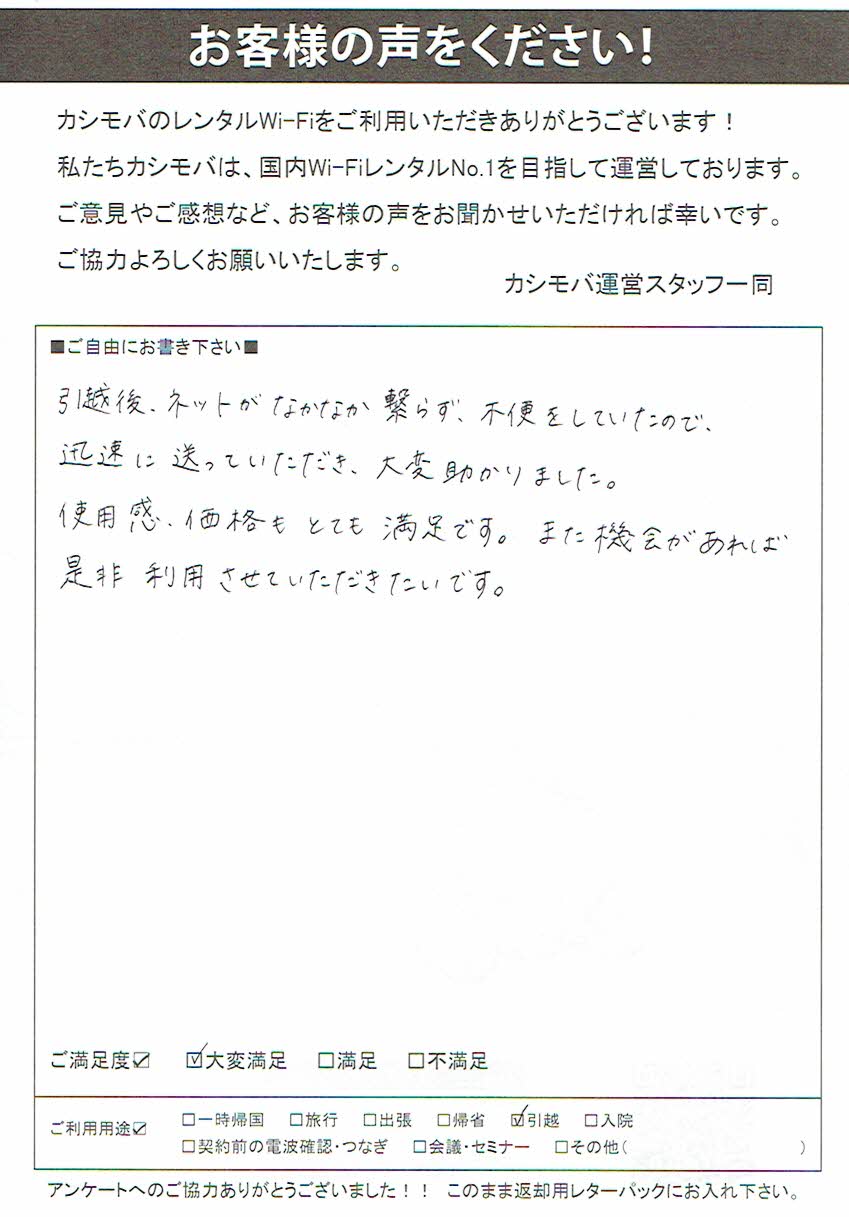 お客様の声をください!
カシモバのレンタルWi-Fiをご利用いただきありがとうございます！
私たちカシモバは、国内Wi-FiレンタルNo.1を目指して運営しております。
ご意見やご感想など、お客様の声をお聞かせいただければ幸いです。
ご協力よろしくお願いいたします。
カシモバ運営スタッフ一同
■ご自由にお書き下さい■
引越後、ネットがなかなか繋らず、不便をしていたので、
迅速に送っていただき、大変助かりました。
使用感、価格もとても満足です。また機会があれば
是非利用させていただきたいです。
ご満足度☑ ☑大変満足 □満足 □不満足
ご利用用途☑ □一時帰国 □旅行 □出張 □帰省 ☑引越 □入院
□契約前の電波確認・つなぎ □会議・セミナー □その他( )
アンケートへのご協力ありがとうございました！！ このまま返却用レターパックにお入れ下さい。